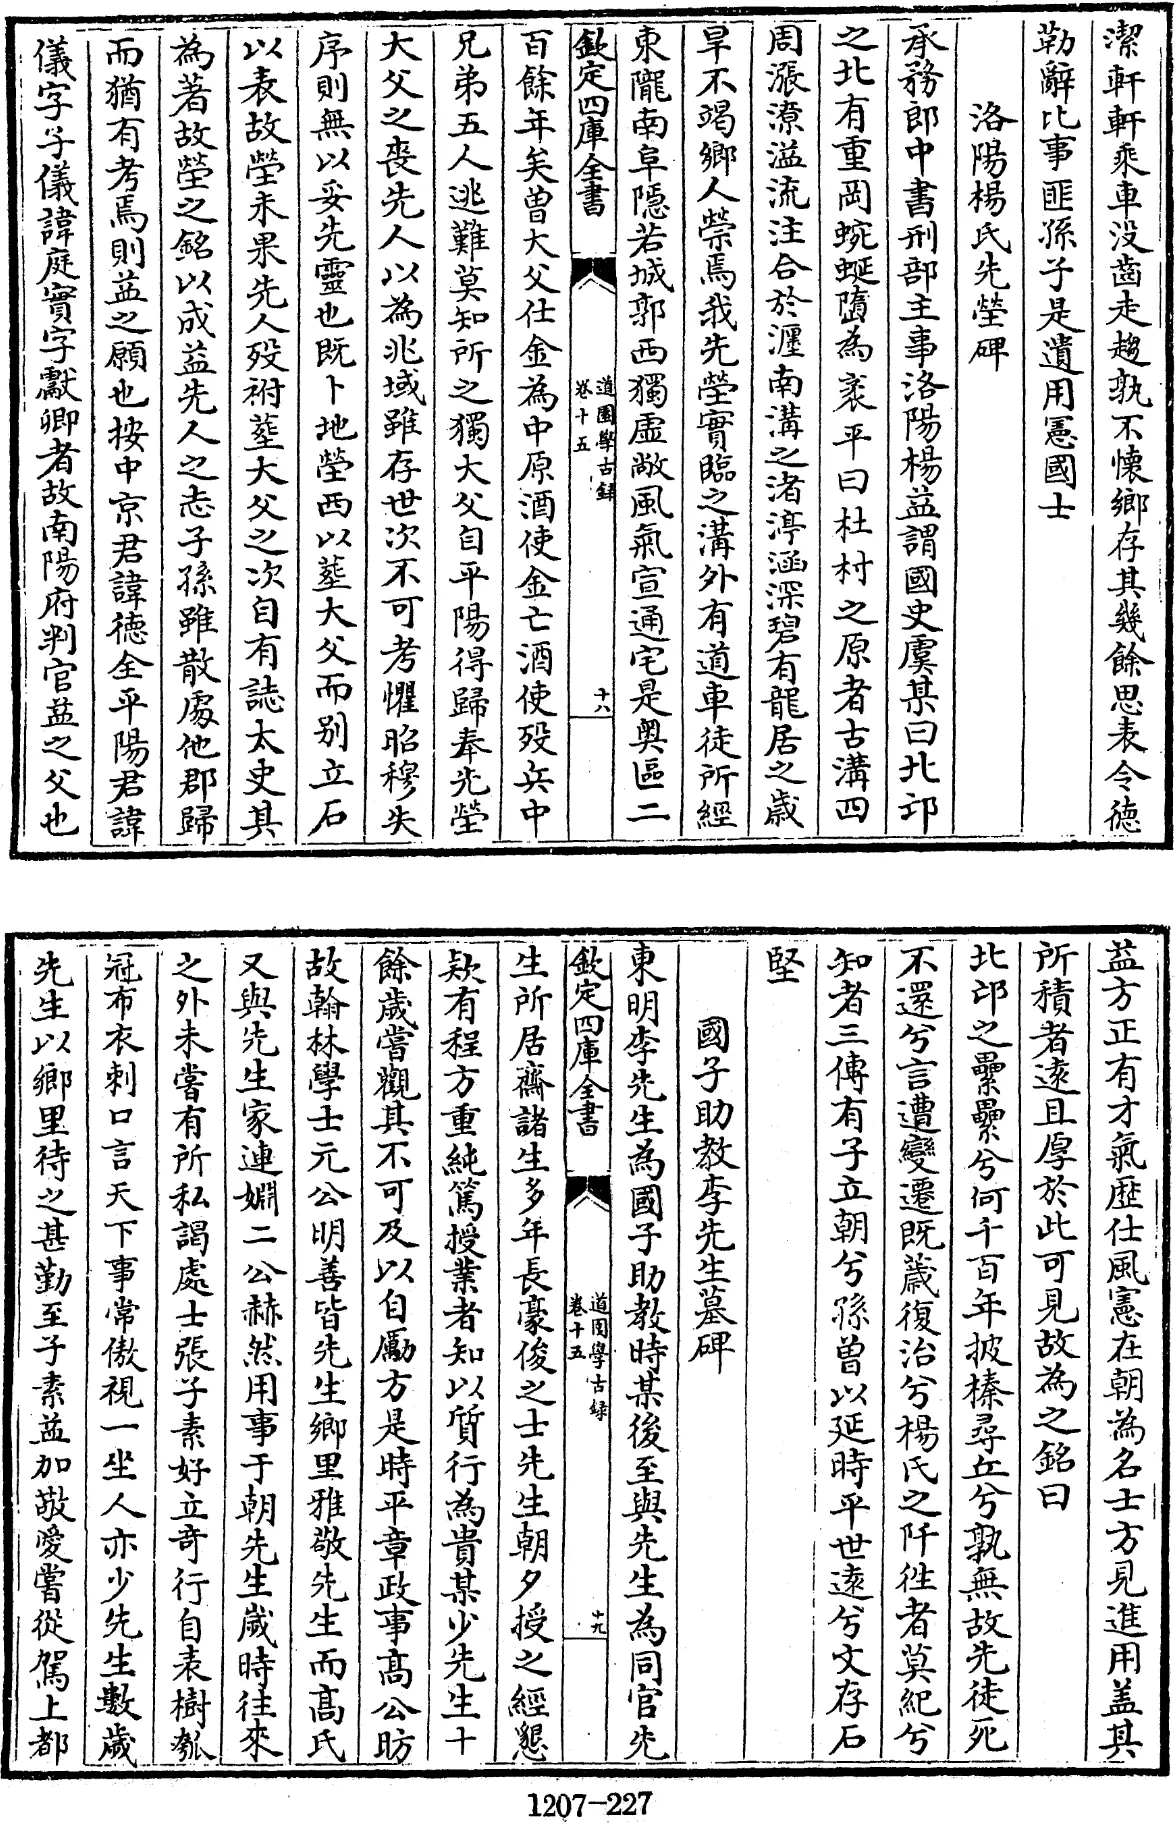 潔軒軒乘車没齒走趨孰不懷鄉存其幾餘思表令德
勒辭比事匪孫子是遺用憲國士
洛陽楊氏先塋碑
承務郎中書刑部主事洛陽楊益謂國史虞某曰北邙
之北有重岡蜿蜒墮為衮平曰杜村之原者古溝四
周漲潦溢流注合於瀍南溝之渚渟涵深碧有龍居之歲
旱不竭鄉人禜焉我先塋實臨之溝外有道車徒所經
東隴南阜隠若城郭西獨虚敞風氣宣通宅是奥區二
欽定四庫全書
道園學古録
卷十五
十八
百餘年矣曽大父仕金為中原酒使金亡酒使殁兵中
兄弟五人逃難莫知所之獨大父自平陽得歸奉先塋
大父之喪先人以為兆域雖存世次不可考懼昭穆失
序則無以妥先靈也既卜地塋西以塟大父而别立石
以表故塋未果先人殁祔塟大父之次自有誌太史其
為著故塋之銘以成益先人之志子孫雖散處他郡歸
而猶有考焉則益之願也按中京君諱徳全平陽君諱
儀字子儀諱庭實字獻卿者故南陽府判官益之父也
益方正有才氣歴仕風憲在朝為名士方見進用盖其
所積者逺且厚於此可見故為之銘曰
北邙之纍纍兮何千百年披榛尋丘兮孰無故先徒死
不還兮言遭變遷既蕆復治兮楊氏之阡徃者莫紀兮
知者三傳有子立朝兮孫曽以延時平世逺兮文存石
堅
國子助教李先生墓碑
東明李先生為國子助教時某後至與先生為同官先
欽定四庫全書
道園學古録
卷十五
十九
生所居齋諸生多年長豪俊之士先生朝夕授之經懇
欵有程方重純篤授業者知以質行為貴某少先生十
餘歲嘗觀其不可及以自勵方是時平章政事髙公昉
故翰林學士元公明善皆先生鄉里雅敬先生而髙氏
又與先生家連婣二公赫然用事于朝先生歲時往來
之外未嘗有所私謁處士張子素好立竒行自表樹瓠
冠布衣刺口言天下事常傲視一坐人亦少先生數歲
先生以鄉里待之甚勤至子素益加敬愛嘗從駕上都
1207-227